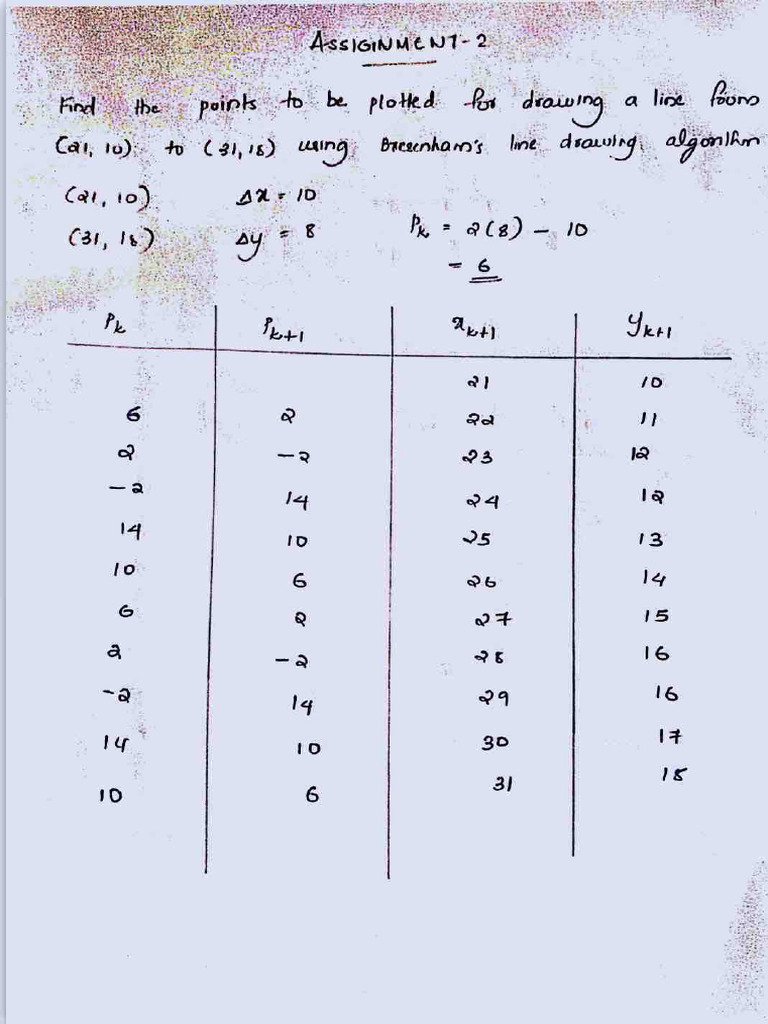 ASSIGINMENT-2
Find the points to be plotted for drawing a line from
(21, 10) to (31, 18) using Bresenham's line drawing algorithm
(21, 10) Δx = 10
(31, 18) Δy = 8 Pk = 2(8) - 10
= 6
Pk Pk+1 xk+1 yk+1
21 10
6 2 22 11
2 -2 23 12
-2 14 24 12
14 10 25 13
10 6 26 14
6 2 27 15
2 -2 28 16
-2 14 29 16
14 10 30 17
10 6 31 18